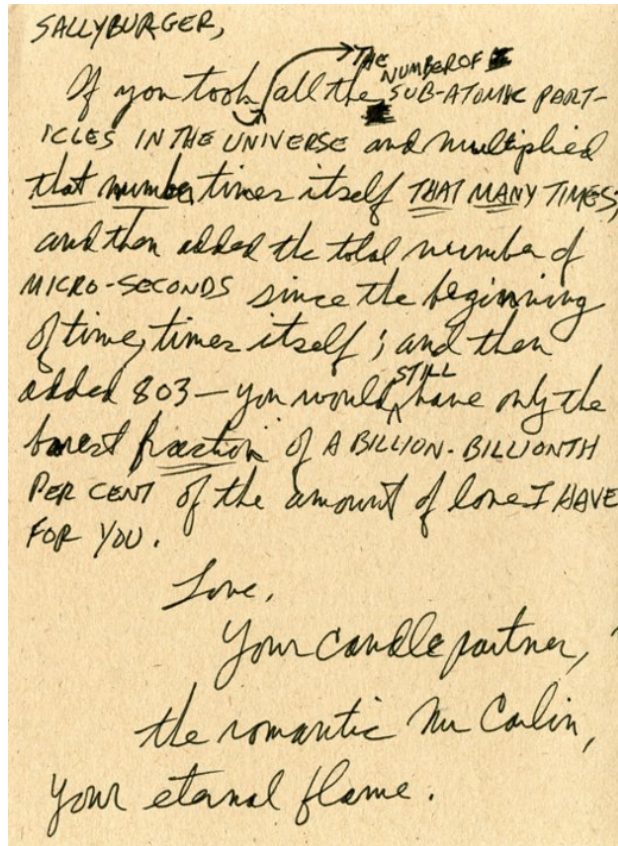 SALLYBURGER,
THE
NUMBER OF
If you took all the SUB-ATOMIC PART-
ICLES IN THE UNIVERSE and multiplied
that number times itself THAT MANY TIMES;
and then added the total number of
MICRO-SECONDS since the beginning
of time, times itself; and then
added 803 — you would STILL have only the
barest fraction of A BILLION-BILLIONTH
PER CENT of the amount of love I HAVE
FOR YOU.
Love,
Your candle partner,
the romantic Mr Carlin,
Your eternal flame.